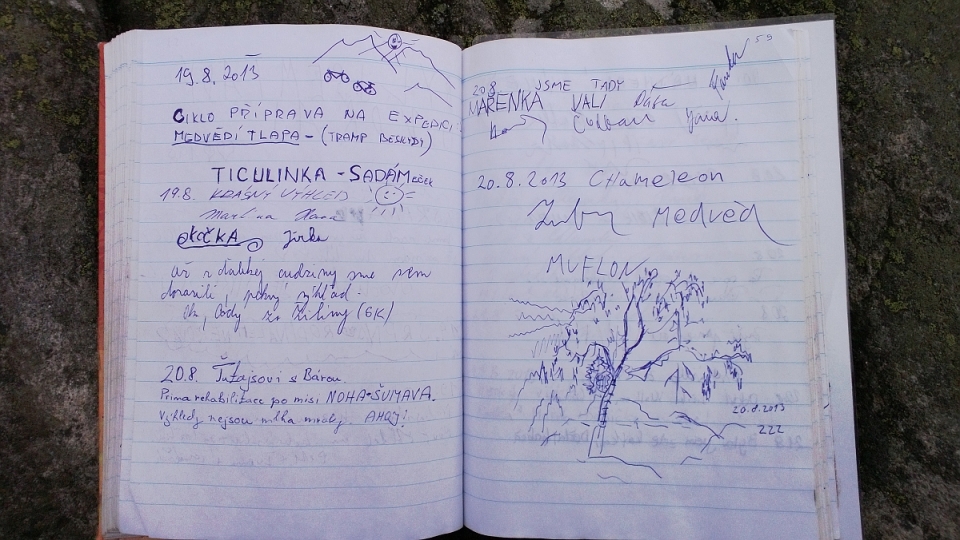 19.8.2013
CIKLO PŘÍPRAVA NA EXPEDICI
MEDVĚDÍ TLAPA - (TRAMP BESKYDI)
TICULINKA - SADÁMEČEK
19.8. KRÁSNÝ VÝHLED
KOČKA Jirka
Až z ďalekej cudziny sme sem
dorazili, pekný výhľad.
zo Žiliny (SK)
20.8. Ťuťajsovi s Bárou.
Prima rehabilitace po misi NOHA-ŠUMAVA.
Výhledy nejsou mlha mraky. AHOJ!
59
20.8. JSME TADY
MAŘENKA VALI Dáša
Jana.
20.8.2013 CHAMELEON
Zuby MEDVĚD
MUFLON
20.8.2013
222